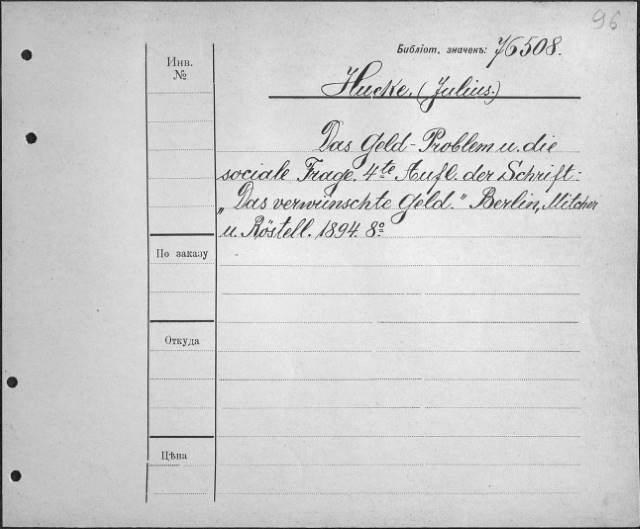 96
Библіот. значенъ: 7/6508.
Инв.
№
Hucke. (Julius.)
Das Geld-Problem u. die
sociale Frage. 4te Aufl. der Schrift:
„Das verwünschte Geld.“ Berlin, Mitscher
u. Röstell. 1894. 8º
По заказу
Откуда
Цѣна